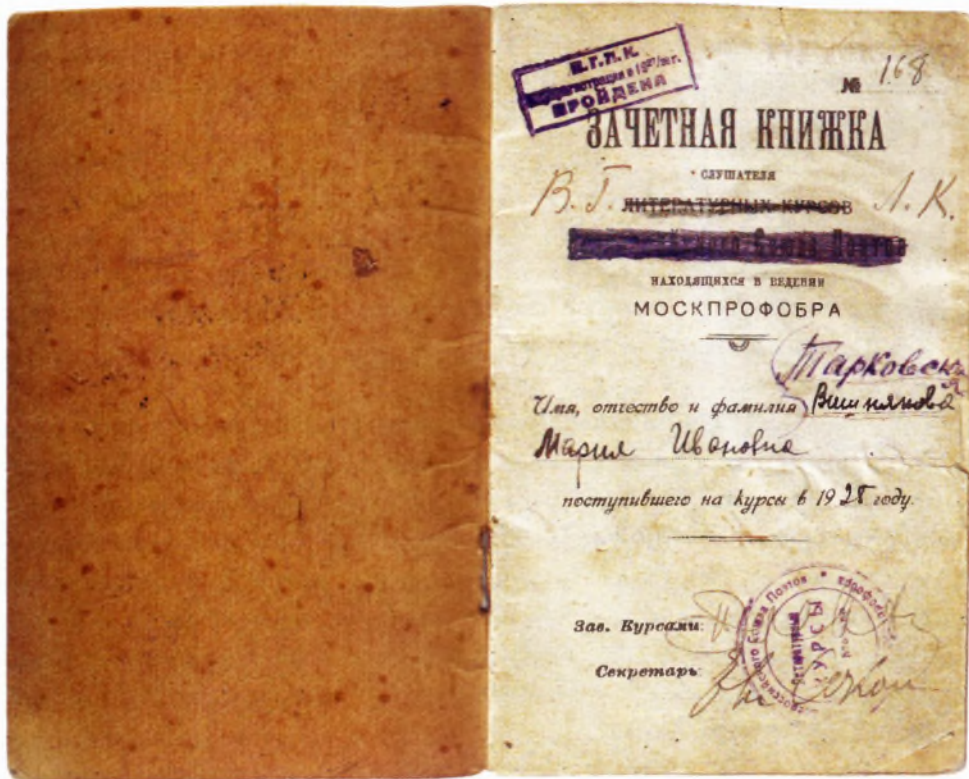 № 168
В.Г.П.К.
в 1927/28 г.
ПРОЙДЕНА
ЗАЧЕТНАЯ КНИЖКА
СЛУШАТЕЛЯ
В. Г. ЛИТЕРАТУРНЫХ КУРСОВ Л. К.
Союза Поэтов
НАХОДЯЩИХСЯ В ВЕДЕНИИ
МОСКПРОФОБРА
Тарковская
Имя, отчество и фамилия Вишнякова
Мария Ивановна
поступившего на курсы в 1925 году.
Зав. Курсами:
Секретарь:
Союза Поэтов
КУРСЫ